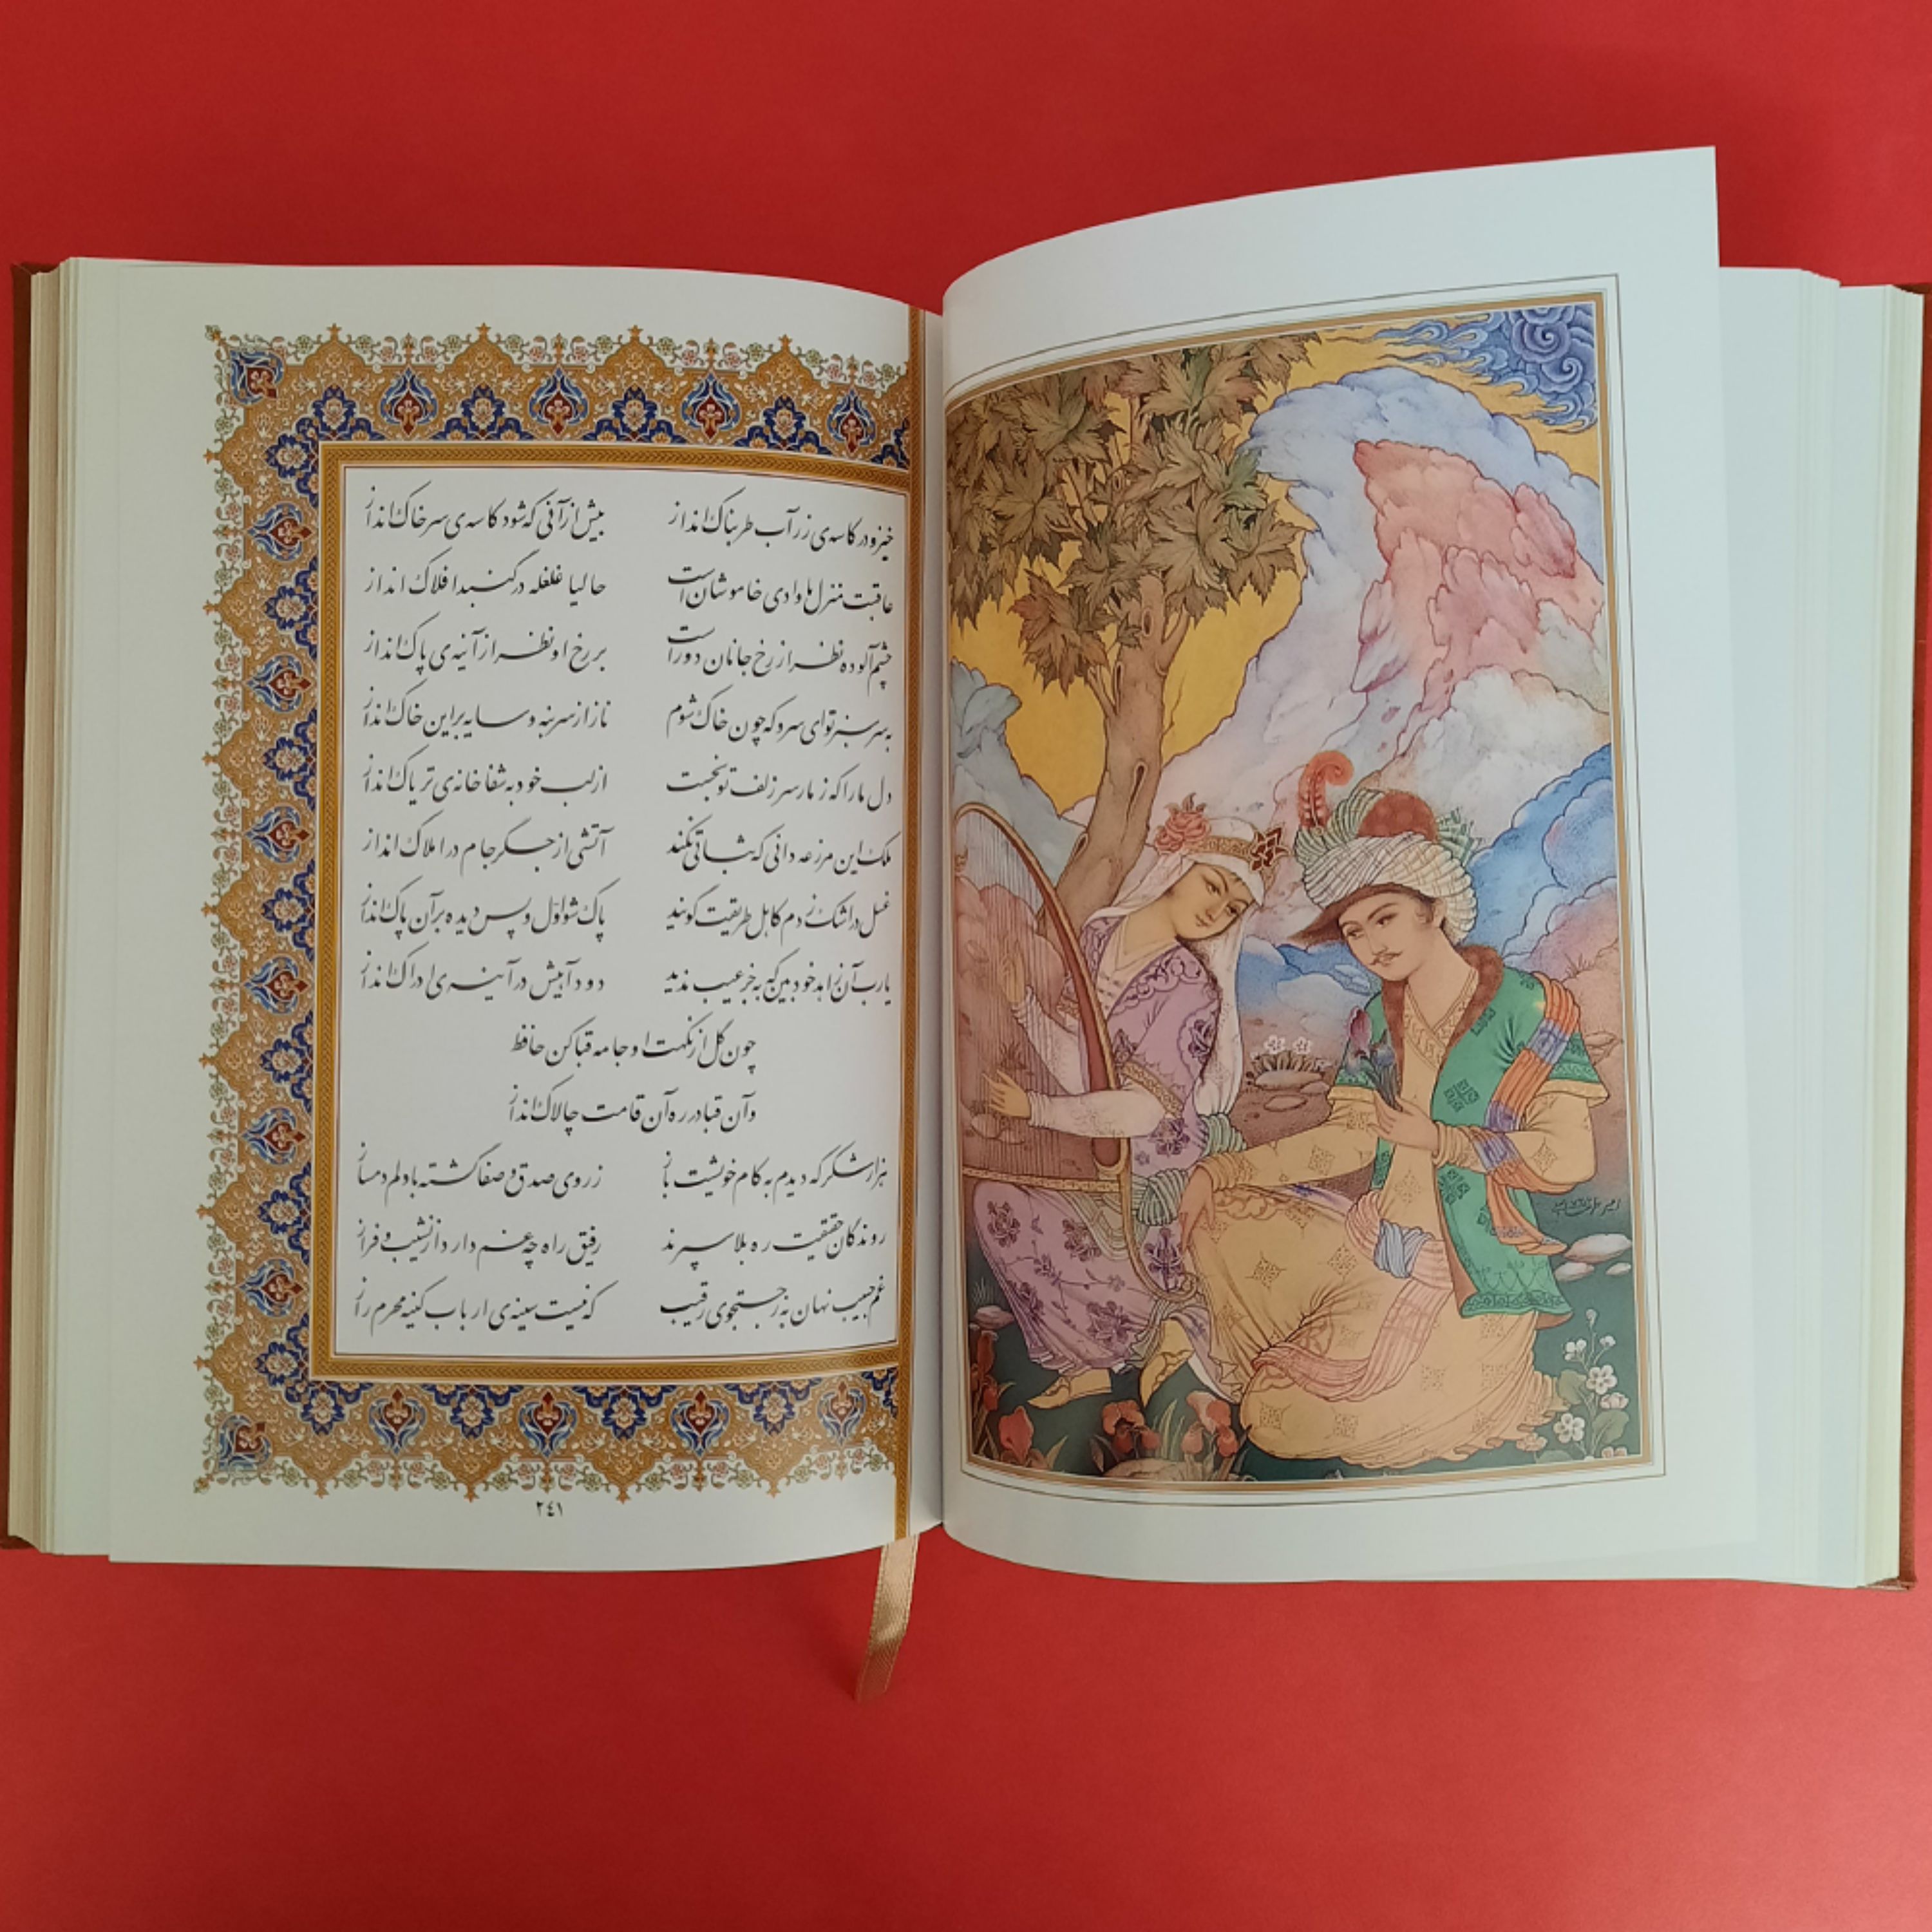 خیز و در کاسه‌ی زر آب طربناک انداز   پیش از آنی که شود کاسه‌ی سر خاک انداز
عاقبت منزل ما وادی خاموشان است   حالیا غلغله در گنبد افلاک انداز
چشم آلوده نظر از رخ جانان دور است   بر رخ او نظر از آینه‌ی پاک انداز
به سر سبز تو ای سرو که چون خاک شوم   ناز از سر بنه و سایه بر این خاک انداز
دل ما را که ز مار سر زلف تو بخست   از لب خود به شفاخانه‌ی تریاک انداز
ملک این مزرعه دانی که ثباتی نکند   آتشی از جگر جام در املاک انداز
غسل در اشک زدم کاهل طریقت گویند   پاک شو اوّل و پس دیده بر آن پاک انداز
یارب آن زاهد خودبین که به جز عیب ندید   دود آهیش در آینه‌ی ادراک انداز
چون گل از نکهت او جامه قبا کن حافظ
وآن قبا در ره آن قامت چالاک انداز
هزار شکر که دیدم به کام خویشت باز   ز روی صدق و صفا گشته با دلم دمساز
روندگان حقیقت ره بلا سپرند   رفیق راه چه غم دارد از نشیب و فراز
غم حبیب نهان به ز جستجوی رقیب   که نیست سینه‌ی ارباب کینه محرم راز
۲٤۱